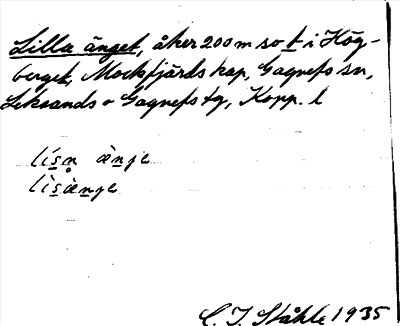 Lilla änget, åker 200 m so t i Hög-
berget, Mockfjärds kap, Gagnefs sn,
Leksands o Gagnefs tg, Kopp. l
lísn ànje
lìsånje
C. I. Ståhle 1935